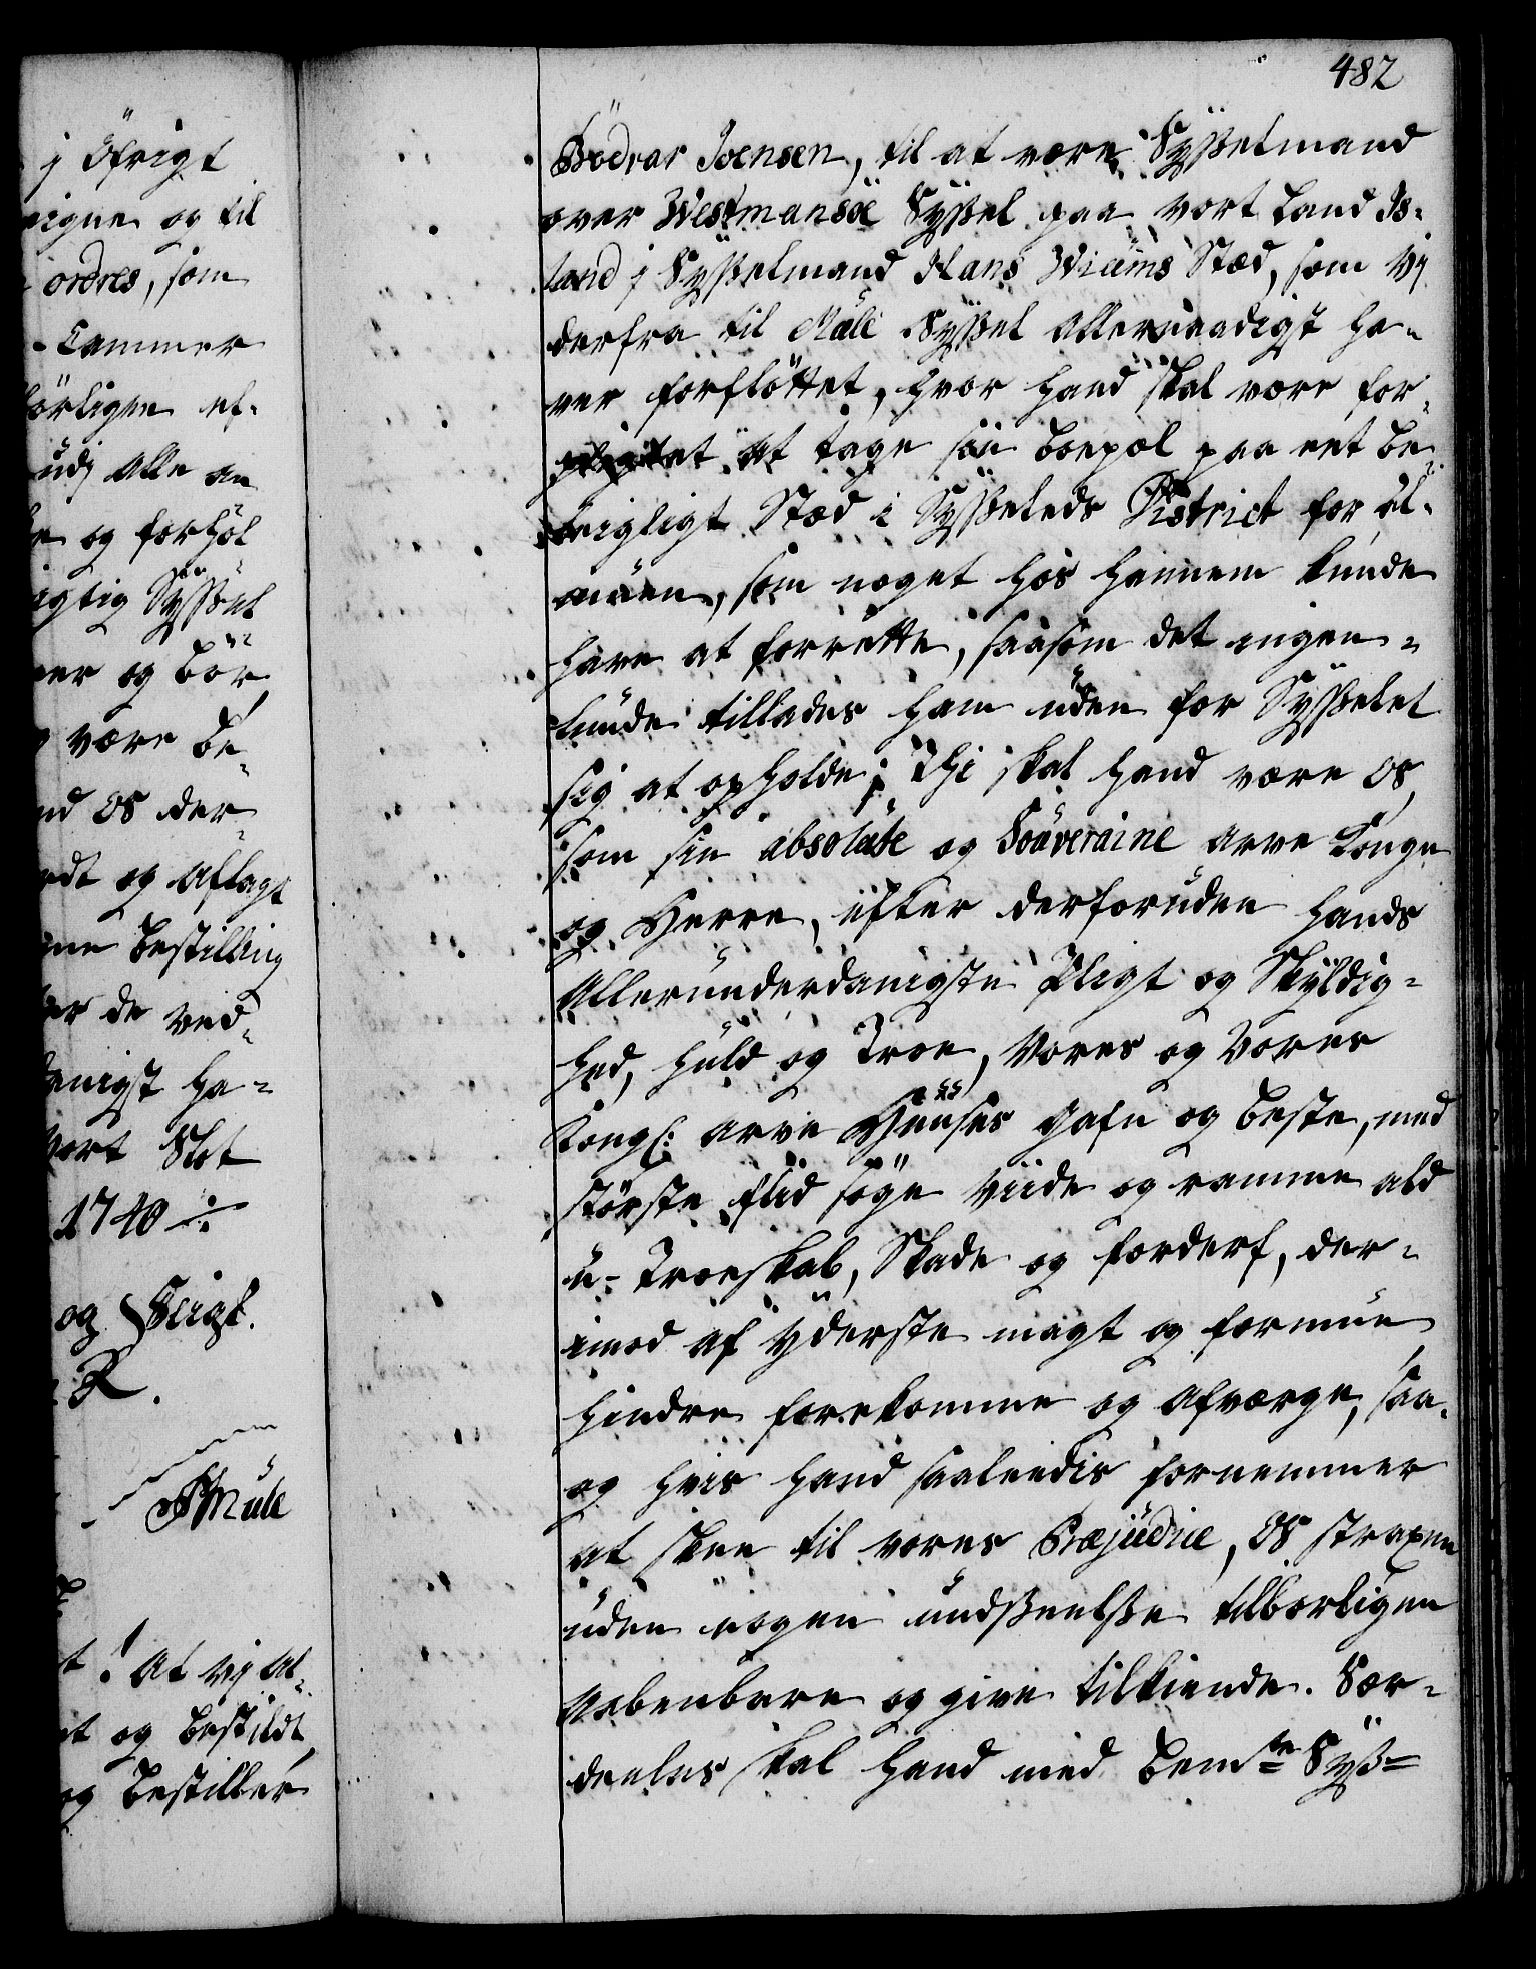 482
j Öfrigt
eigne og til
ordres, som
Cammer
börligen ef-
udj Alle an
og forhol
igtig Syssel
er og bör
være be-
nd OS der-
edt og Aflagt
ne bestilling
er de ved-
danigst ha-
Vort Slot
1740 ÷
og Seigl.
R.
FMüle
t! At Vj Al-
et og bestildt,
og bestiller
Bödvar Joensen, til at være Sysselmand
over Westmansöe Syssel paa vort Land Is-
land j Sysselmand Hans Wiüms Stæd, som Vj
derfra til Müle Syssel Allernaadigst ha-
ver forflöttet, hvor hand skal være for-
pligtet at tage sin boepæl paa eet be-
leigligt Stæd i Sysselets District for al-
müen, som noget hos hannem kunde
have at forrette, saasom det ingen-
lunde tillades ham uden for Sysselet
sig at opholde; Thi skal hand være OS,
som sin absolute og Souveraine Arve Konge
og Herre, üfter derforuden hands
Allerunderdanigste Pligt og Skyldig-
hed, huld og Troe, Vores og Vores
Kongl: Arve Huuses gafn og beste, med
störste fliid söge Viide og ramme, ald
u-Troeskab, Skade og forderf, der-
imod af yderste magt og formue
hindre forekomme og Afværge, saa-
og hvis hand saaleedis fornemmer
at skee til vores Præjudice, OS straxen
uden nogen undseelse tilbørligen
Aabenbare og give tilkiende. Sær-
deeles skal hand med bemte Sys-